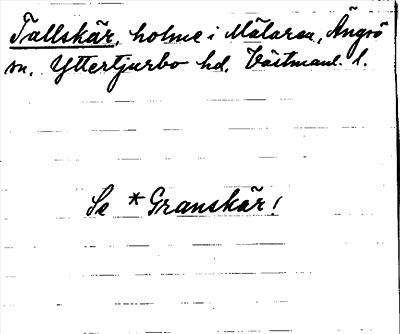 Tallskär, holme i Mälaren, Ängsö
sn. Yttertjurbo hd. Västmanl. l.
Se *Granskär!